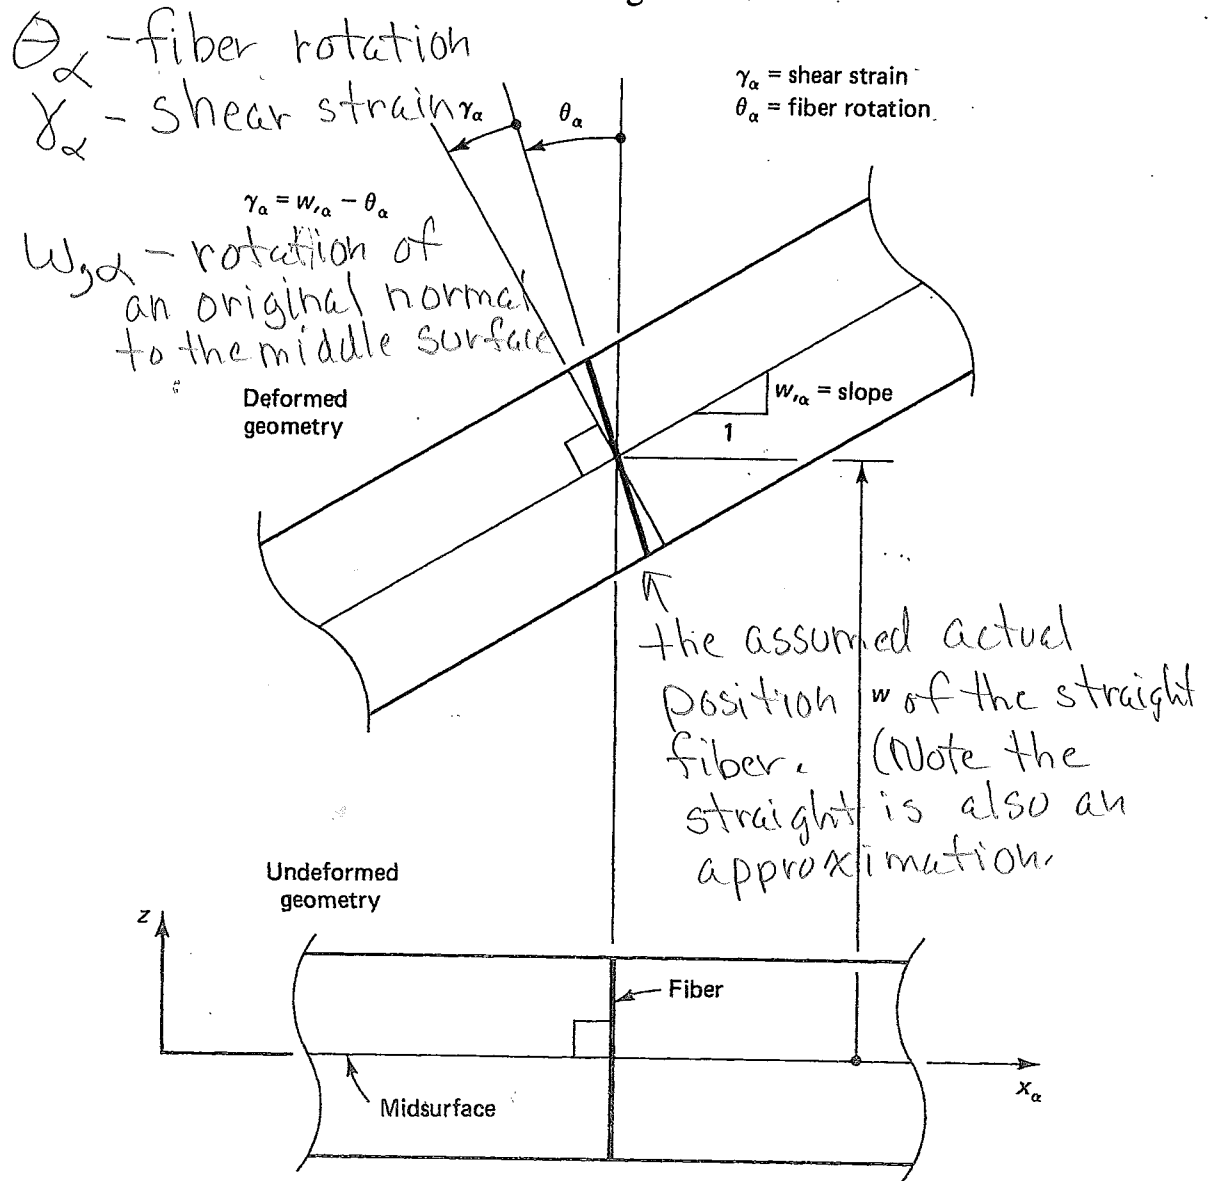 θα - fiber rotation
γα - shear strain
γα
θα
γα = shear strain
θα = fiber rotation
γα = w,α − θα
w,α - rotation of
an original normal
to the middle surface
Deformed
geometry
w,α = slope
1
the assumed actual
position of the straight
fiber. (Note the
straight is also an
approximation.
w
Undeformed
geometry
z
Fiber
Midsurface
xα